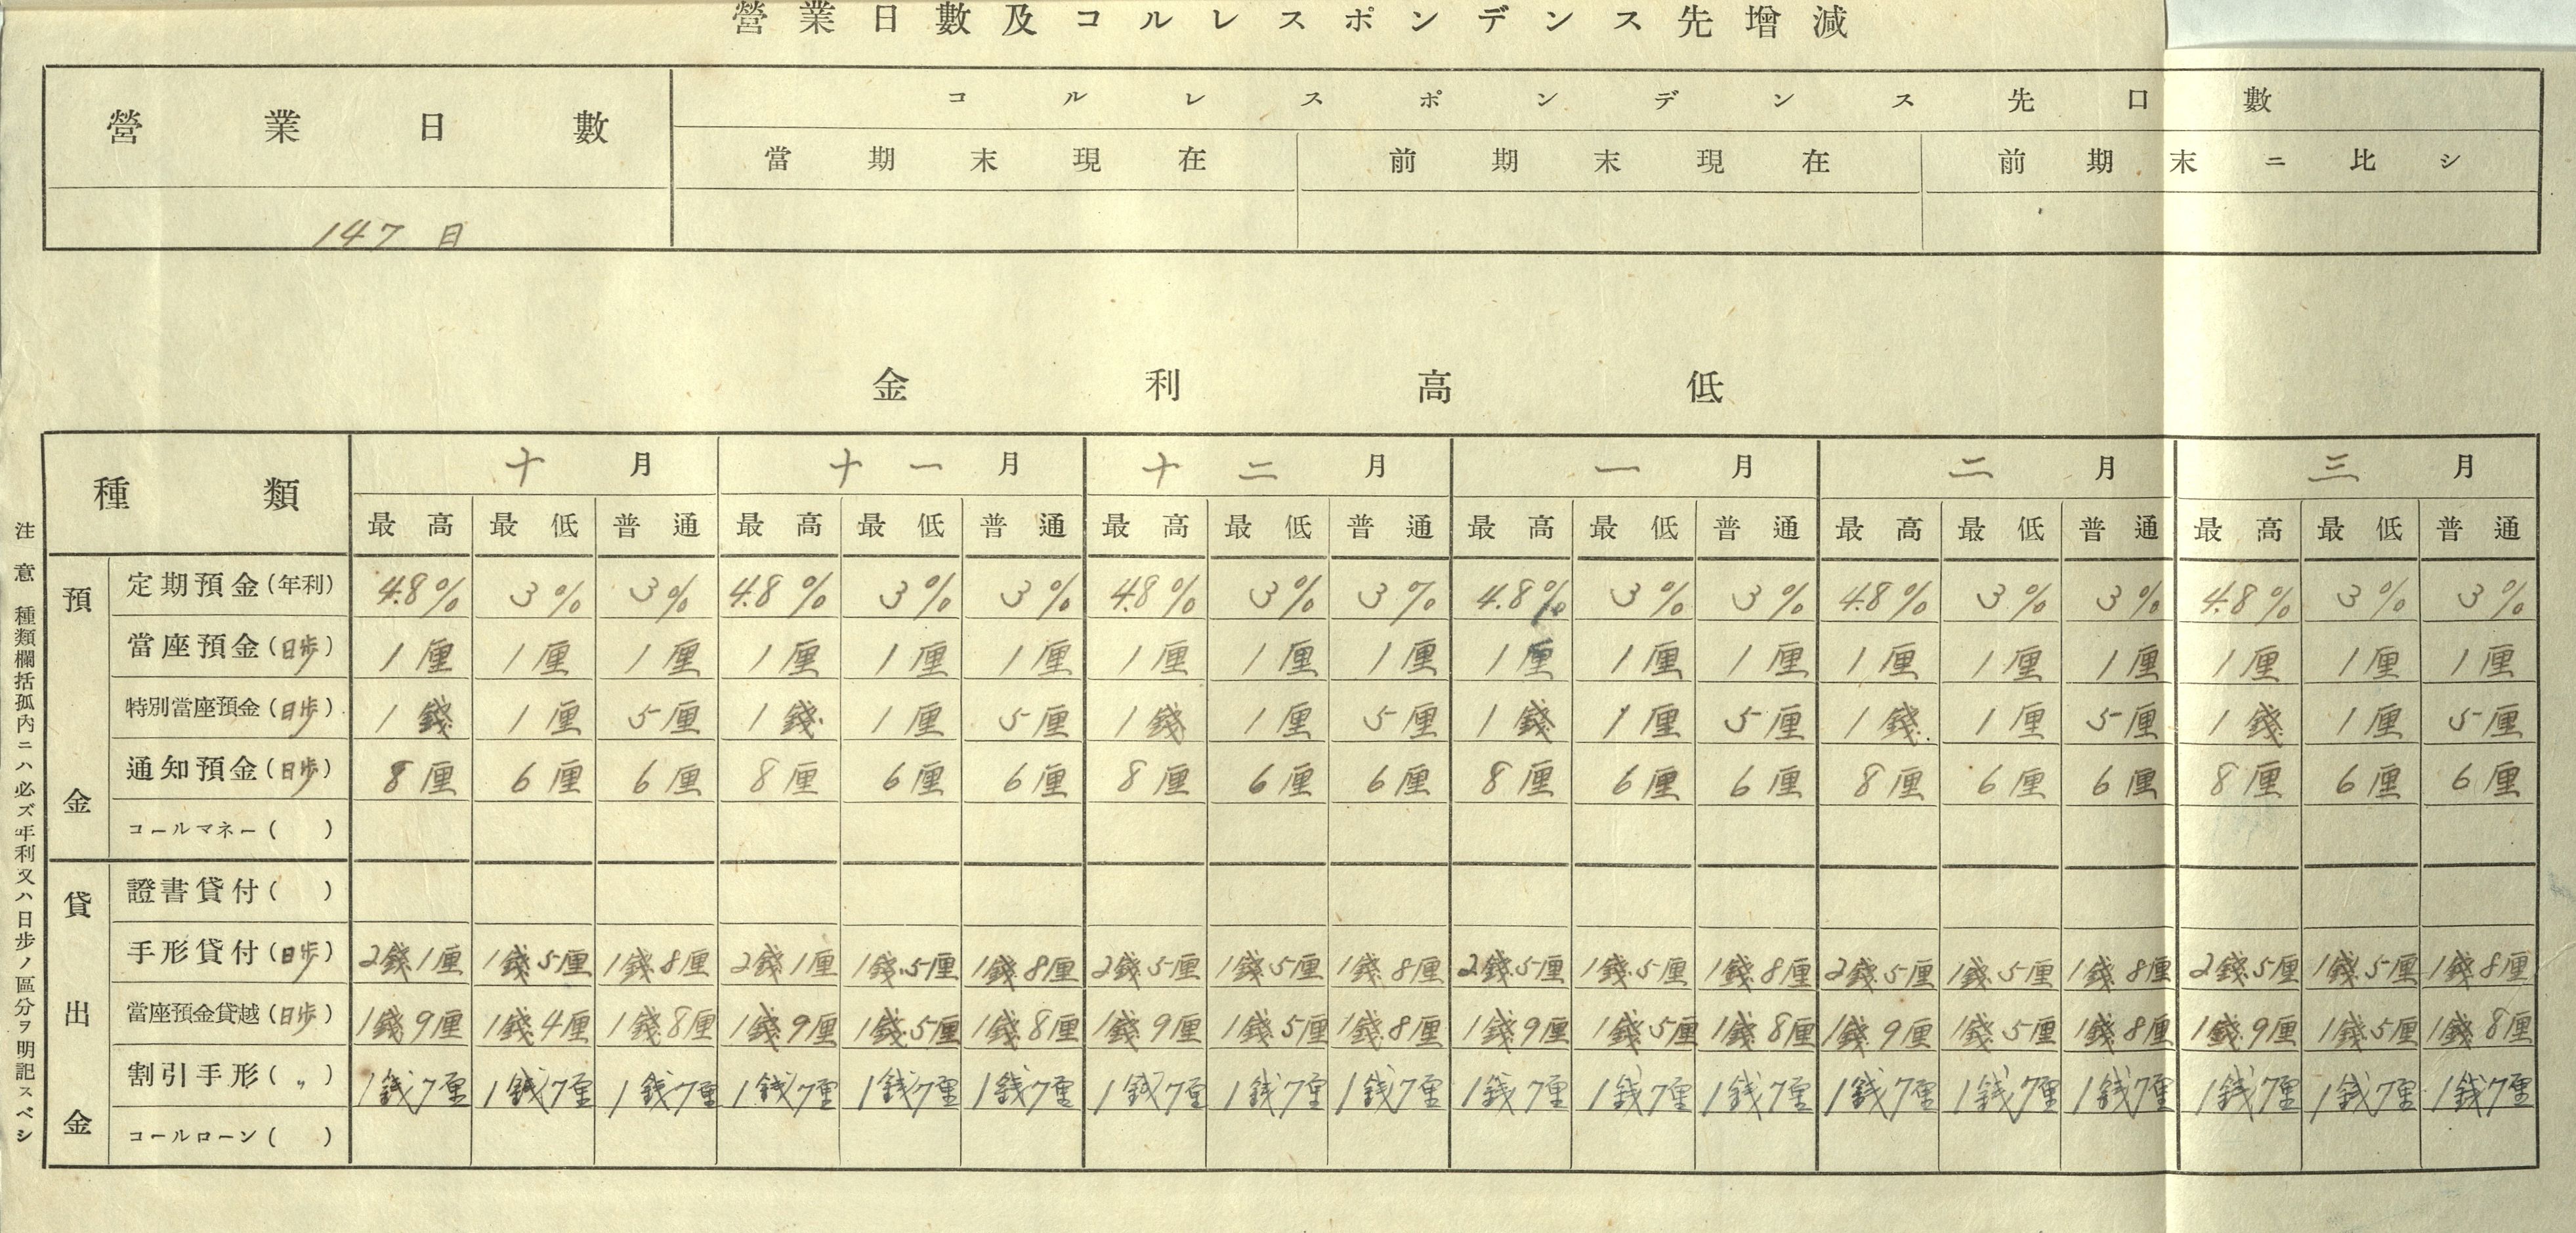 營業日數及コルレスポンデンス先增減
營業日數 コルレスポンデンス先口數
當期末現在 前期末現在 前期末ニ比シ
147 日
金利高低
種類 十月 十一月 十二月 一月 二月 三月
最高 最低 普通 最高 最低 普通 最高 最低 普通 最高 最低 普通 最高 最低 普通 最高 最低 普通
預金
定期預金(年利) 4.8% 3% 3% 4.8% 3% 3% 4.8% 3% 3% 4.8% 3% 3% 4.8% 3% 3% 4.8% 3% 3%
當座預金(日歩) 1厘 1厘 1厘 1厘 1厘 1厘 1厘 1厘 1厘 1厘 1厘 1厘 1厘 1厘 1厘 1厘 1厘 1厘
特別當座預金(日歩) 1錢 1厘 5厘 1錢 1厘 5厘 1錢 1厘 5厘 1錢 1厘 5厘 1錢 1厘 5厘 1錢 1厘 5厘
通知預金(日歩) 8厘 6厘 6厘 8厘 6厘 6厘 8厘 6厘 6厘 8厘 6厘 6厘 8厘 6厘 6厘 8厘 6厘 6厘
コールマネー( )
貸出金
證書貸付( )
手形貸付(日歩) 2錢1厘 1錢5厘 1錢8厘 2錢1厘 1錢5厘 1錢8厘 2錢5厘 1錢5厘 1錢8厘 2錢5厘 1錢5厘 1錢8厘 2錢5厘 1錢5厘 1錢8厘 2錢5厘 1錢5厘 1錢8厘
當座預金貸越(日歩) 1錢9厘 1錢4厘 1錢8厘 1錢9厘 1錢5厘 1錢8厘 1錢9厘 1錢5厘 1錢8厘 1錢9厘 1錢5厘 1錢8厘 1錢9厘 1錢5厘 1錢8厘 1錢9厘 1錢5厘 1錢8厘
割引手形(〃) 1錢7厘 1錢7厘 1錢7厘 1錢7厘 1錢7厘 1錢7厘 1錢7厘 1錢7厘 1錢7厘 1錢7厘 1錢7厘 1錢7厘 1錢7厘 1錢7厘 1錢7厘 1錢7厘 1錢7厘 1錢7厘
コールローン( )
注意 種類欄括孤內ニハ必ズ年利又ハ日步ノ區分ヲ明記スベシ